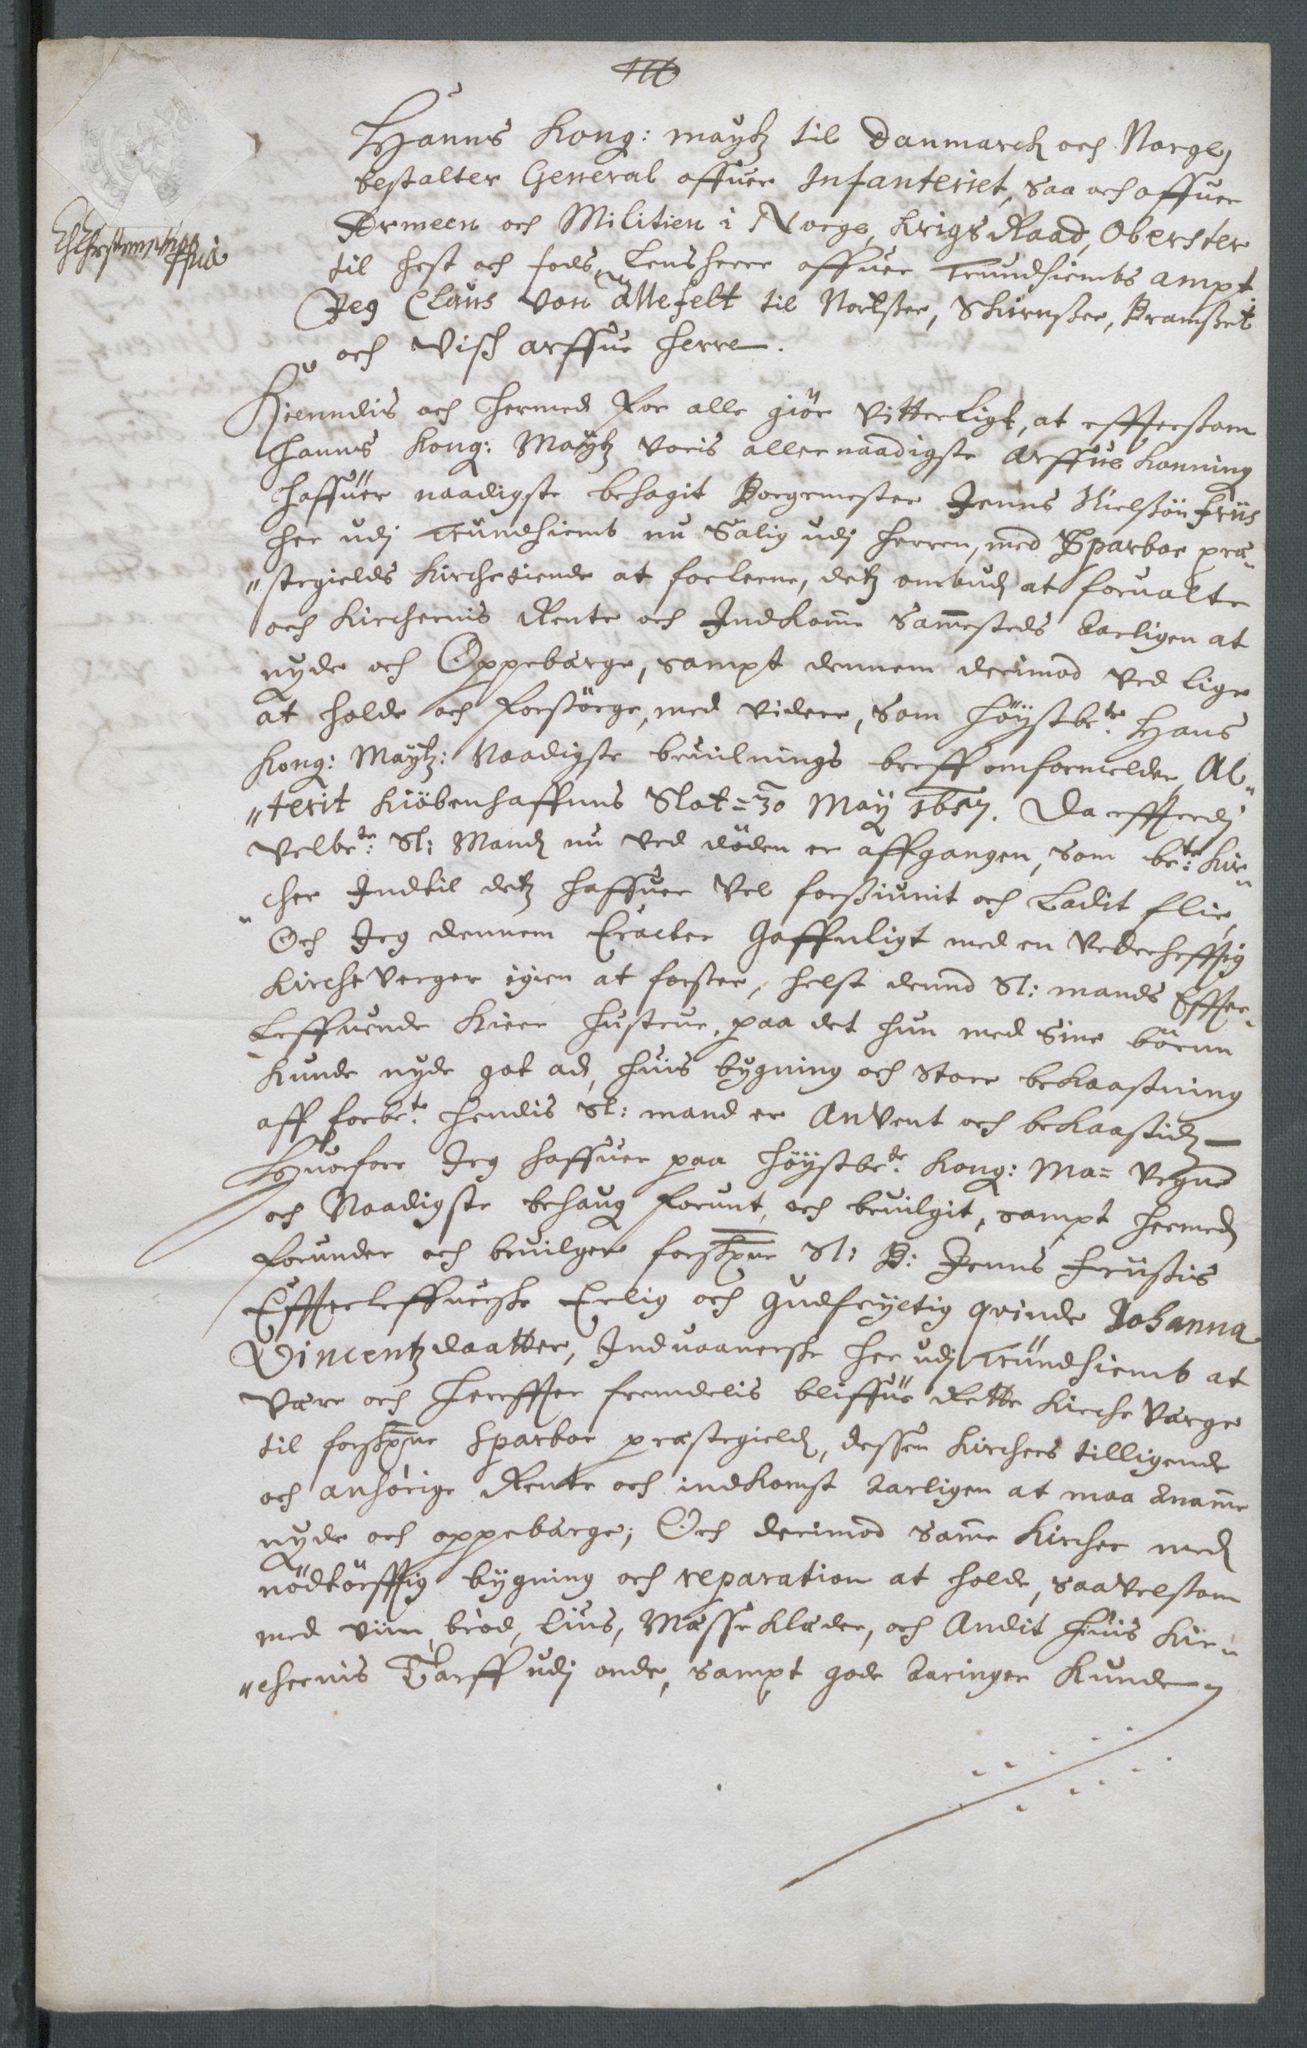 Hanns Kong: maytz til Danmarck och Norge,
bestalter General offuer Infanteriet, saa och offuer
Armeen och Militien i Norge, Krigs Raad, Oberster
til hest och fods, Lensherre offuer Trundhiembs ampt
Jeg Claus von Allefelt til
och arffue herre.
Kienndis och hermed for alle giör vitterligt, at effttersom
hanns Kong: Maytz voris allernaadigste Arffue Konning
haffuer naadigste behagit Borgemester Jenns Nielssön Friis
her udj Trundhiemb nu Salig udj herren, med Sparboe præ„
„stegields Kirchetiende at forleene, detz ombud at forvalte
och Kirchernis Rente och Indkomme Sammesteds aarligen at
nyde och Oppebærge, sampt dennem derimod ved lige
at holde och forsörge, med videre, som höystbete. Hans
Kong: Maytz: Naadigste bevilnings breff omformelder, Al„
„terit Kiöbenhaffuns Slot = 30 May 1657. Da effterdj
velbete: Sl: Mand nu ved döden er affgangen, som bete: Kir„
„cher Indtil detz haffuer vel forssiunit och Ladit flie,
Och Jeg dennem Eracter Gaffnligt med en vederhefftig
Kirche verger igien at forsee, helst dennd Sl: mands Effter„
„Leffuende Kiere hustrue, paa det hun med Sine börnn
kunde nyde got ad, huis bygning och Store bekaastning
aff forbete. hendis Sl: mand er Anvent och bekaastid,
Huorfore Jeg haffuer paa höystbete. Kong: Ma= vegne
och Naadigste behaug forunt, och bevilgit, sampt hermed
forunder och bevilger forschreffne Sl: B: Jenns Friisis
Effterleffuerske Erlig och gudfryctig qvinde Johanna
Vincentzdaatter, Induaanerske her udj Trundhiemb at
være och hereffter fremdelis bliffue Rette Kirche verge
til forschreffne Sparboe præstegield, dessen Kirchers tilligende
och anhörige Rente och indkomst aarligen at maa anamme
nyde och oppebærge; Och derimod samme Kircher med
nödtörfftig bygning och reparation at holde, saavelsom
med viin, bröd, lius, Messe Klæder, och Andit huis Kir„
„chernis Tarff udj onde, sampt gode aaringer kunde